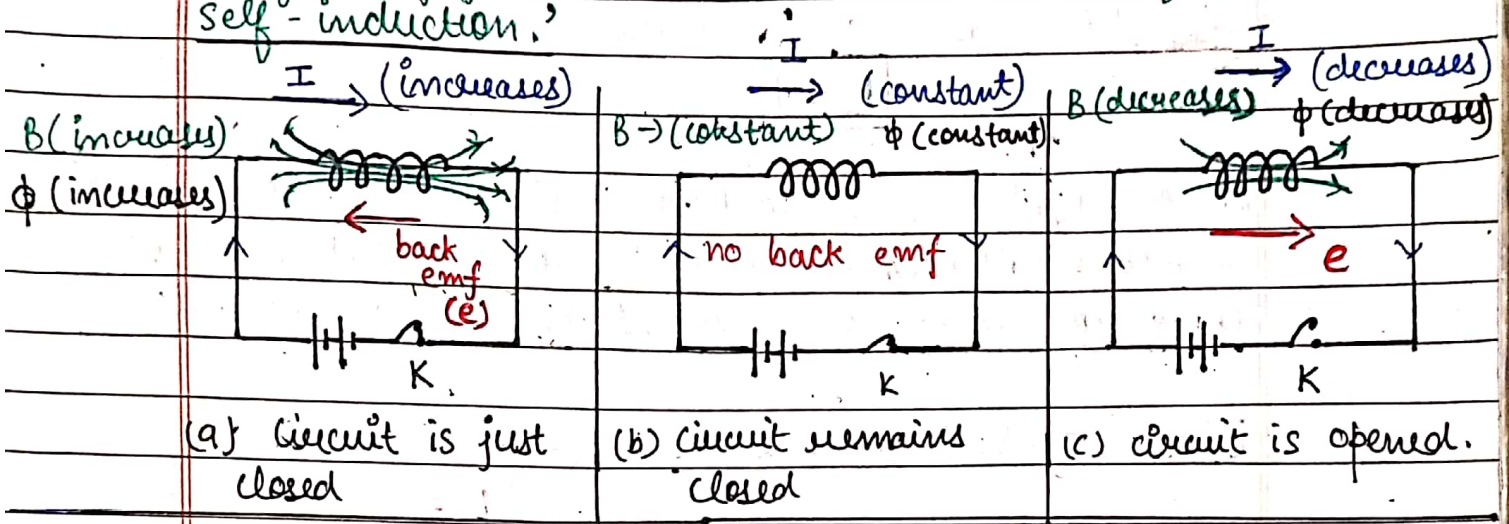 self-induction.'
I
(increases)
B(increases)
ϕ (increases)
back
emf
(e)
K
(a) Circuit is just
closed
I
(constant)
B → (constant) ϕ (constant).
no back emf
K
(b) circuit remains
closed
I
(decreases)
B (decreases) ϕ (decreases)
e
K
(c) circuit is opened.